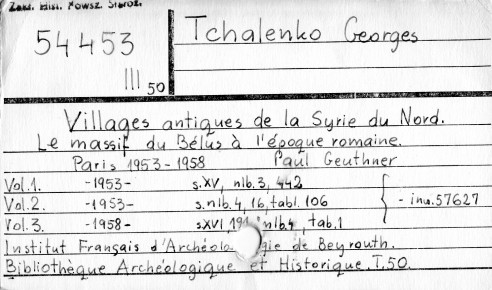 Zakł. Hist. Powsz. Staroż.
54453
III 50
Tchalenko Georges
Villages antiques de la Syrie du Nord.
Le massif du Bélus à l'époque romaine.
Paris 1953-1958 Paul Geuthner
Vol.1. -1953- s.XV, nlb.3, 442
Vol.2. -1953- s.nlb.4, 16, tabl.106 - inw.57627
Vol.3. -1958- sXVI, nlb.4, tab.1
Institut Français d'Archéolo gie de Beyrouth.
Bibliothèque Archéologique et Historique. T.50.